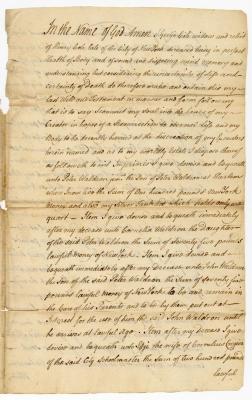 In the Name of God Amen I Evelyn Cole widow and relict
of Henry Cole late of the City of New York deceased being in perfect
Health of Body and of sound and disposing mind memory and
understanding but considering the uncertainty of life and
certainty of Death do therefore make and ordain this my
Last Will and Testament in manner and form following
that is to say I commend my soul into the hands of my
Creator in hopes of a Resurrection to eternal life and my
Body to be decently buried at the discretion of my Executors
herein named and as to my worldly Estate I dispose thereof
as followeth to wit Imprimis I give devise and bequeath
unto Peter Waldron son the Son of Peter Waldron
the Sum of One hundred pounds New York
Money and also my Silver Tankard which holds only one
quart - Item I give devise and bequeath immediately
after my decease unto Cornelia Waldron the daughter
of the said Peter Waldron the Sum of seventy five pounds
lawful Money of New York. Item I give devise and
bequeath immediately after my Decease unto John Waldron
the Son of the said Peter Waldron the Sum of seventy five
pounds lawful money of New York to lie and remain in
the Care of his Parents and to be by them put out at
Interest for the use of him the said John Waldron until
he arrives at lawful Age. Item after my decease I give
devise and bequeath unto the wife of Cornelius
of the said City Schoolmaster the Sum of two hundred pounds
lawful